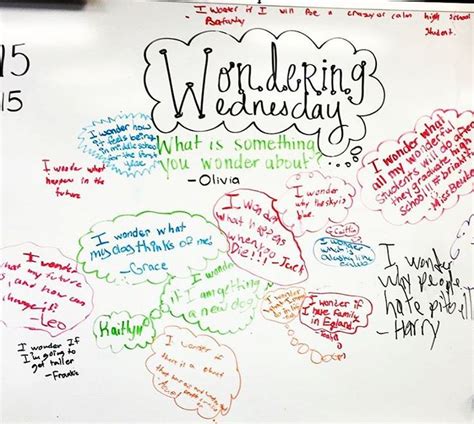 - I wonder if I will be a crazy or calm high school student.
15
15
Wondering
Wednesday
What is something
you wonder about?
- Olivia
I wonder how
it feels being
in middle school
for the first
I wonder what
happens in the
future
I wonder what
all my wonderful
students will do after
they graduate high
school!!!
- Miss
I wonder
why the sky is
blue.
I wonder
what happens
when you
Die!!! - Jack
- Caitlin
I wonder what
my dog thinks of me!
- Grace
I wonder what
I wonder
why people
hate pitbull
- Harry
I wonder
what my future
is, and how can
I change it?
- Leo
I wonder
if I am getting
a new dog?
Kaitlyn
I wonder if
I have family
in England
I wonder If
I'm going to
get taller
- Frankie
I wonder if
there is a